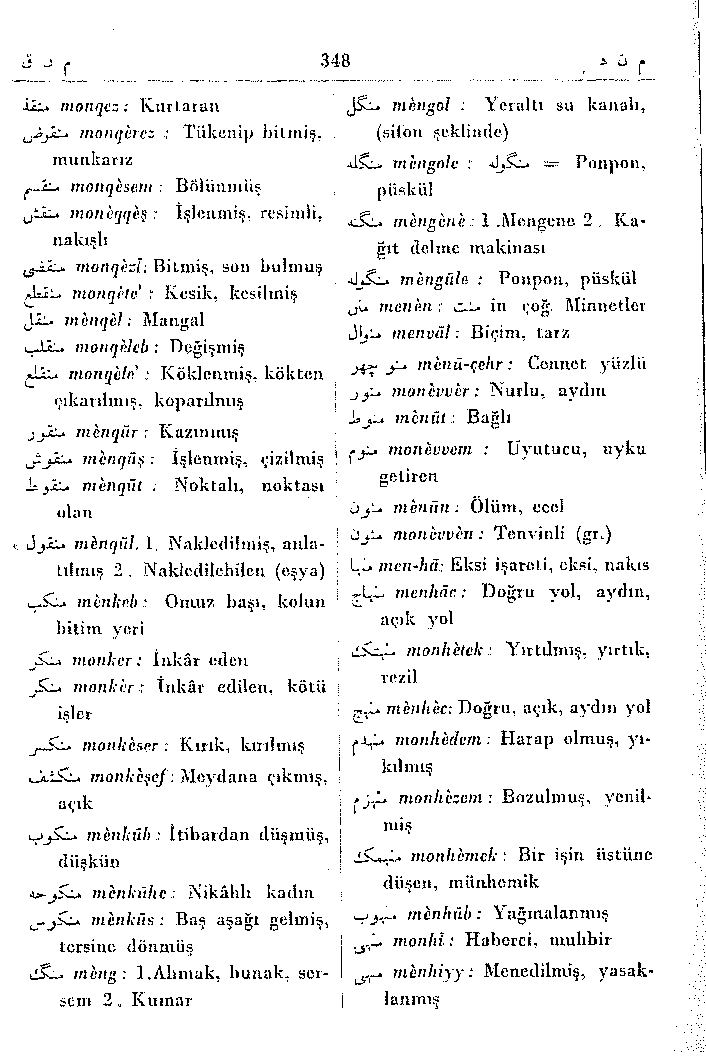 م ن ق 348 م ن د
منقذ monqez : Kurtaran
منقرض monqèrez : Tükenip bitmiş,
munkarız
منقسم monqèsem : Bölünmüş
منقش monèqqèş : İşlenmiş, resimli,
nakışlı
منقضی monqèzî : Bitmiş, son bulmuş
منقطع monqète' : Kesik, kesilmiş
منقل mènqèl : Mangal
منقلب monqèleb : Değişmiş
منقلع monqèle' : Köklenmiş, kökten
çıkarılmış, koparılmış
منقور mènqûr : Kazınmış
منقوش mènqûş : İşlenmiş, çizilmiş
منقوط mènqût : Noktalı, noktası
olan
منقول mènqûl. 1. Nakledilmiş, anla-
tılmış 2. Nakledilebilen (eşya)
منکب mènkeb : Omuz başı, kolun
bitim yeri
منکر monker : İnkâr eden
منکر monkèr : İnkâr edilen, kötü
işler
منکسر monkèser : Kırık, kırılmış
منکشف monkèşef : Meydana çıkmış,
açık
منکوب mènkûb : İtibardan düşmüş,
düşkün
منکوحه mènkûhe : Nikâhlı kadın
منکوس mènkûs : Baş aşağı gelmiş,
tersine dönmüş
منگ mèng : 1.Ahmak, bunak, ser-
sem 2. Kumar
منگل mèngol : Yeraltı su kanalı,
(sifon şeklinde)
منگله mèngole : منگوله = Ponpon,
püskül
منگنه mèngènè : 1.Mengene 2. Ka-
ğıt delme makinası
منگوله mèngûle : Ponpon, püskül
منن menèn : منت in çoğ. Minnetler
منوال menvâl : Biçim, tarz
منو چهر mènû-çehr : Cennet yüzlü
منور monèvvèr : Nurlu, aydın
منوط mènût : Bağlı
منوم monèvvem : Uyutucu, uyku
getiren
منون mènûn : Ölüm, ecel
منون monèvvèn : Tenvinli (gr.)
منها men-hâ : Eksi işareti, eksi, nakıs
منهاج menhâc : Doğru yol, aydın,
açık yol
منهتک monhètek : Yırtılmış, yırtık,
rezil
منهج mènhèc : Doğru, açık, aydın yol
منهدم monhèdem : Harap olmuş, yı-
kılmış
منهزم monhèzem : Bozulmuş, yenil-
miş
منهمک monhèmek : Bir işin üstüne
düşen, münhemik
منهوب mènhûb : Yağmalanmış
منهی monhî : Haberci, muhbir
منهی mènhiyy : Menedilmiş, yasak-
lanmış